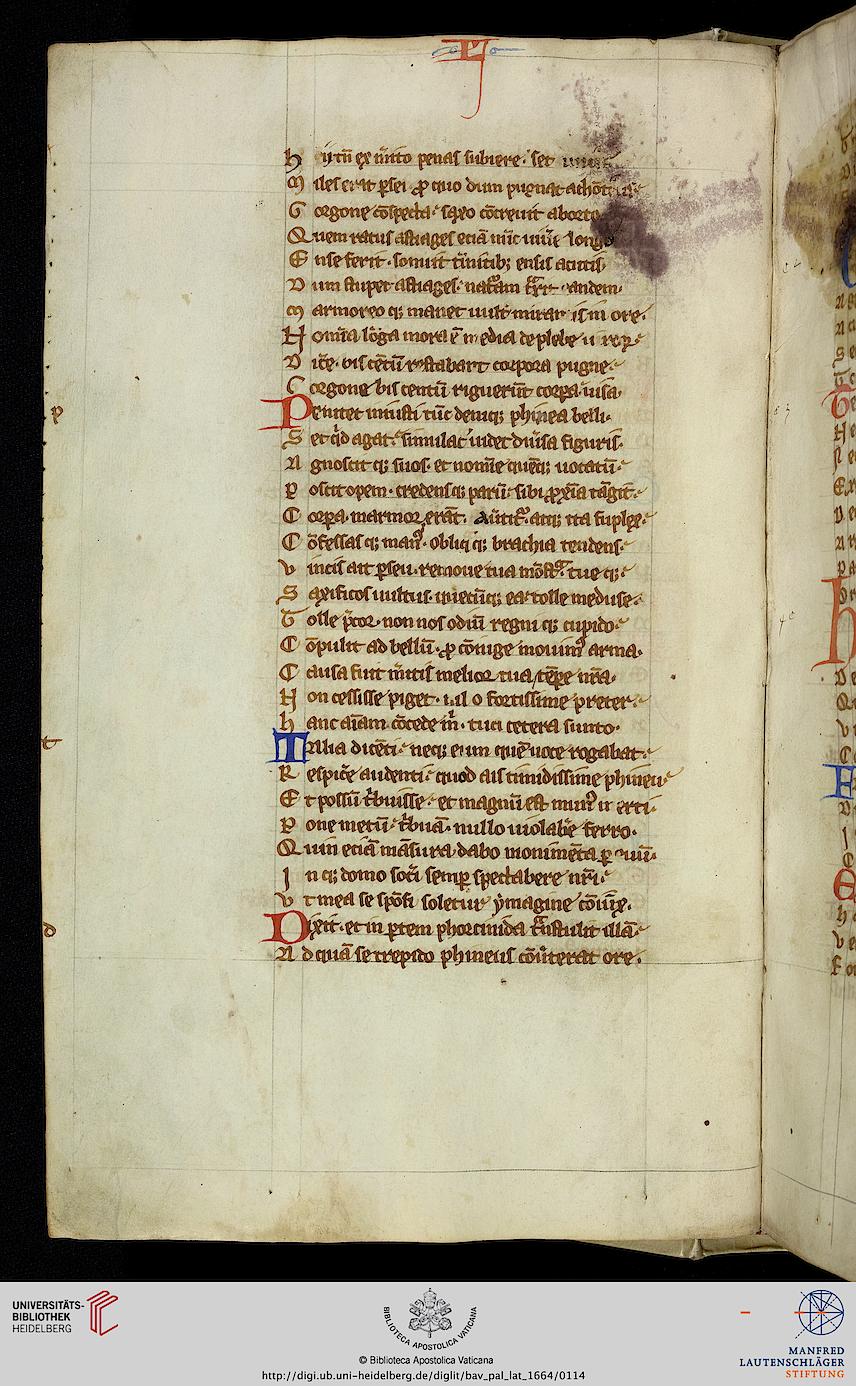 M
h ij tn̄ ex m̄ito penas subiere· set
M iles erat ꝑsei ꝓ quo dum pugnat
G orgone cōspecta saxo cōcreuit aborto
Q uem ratus astiages etiā nūc uiuē longo
E nse ferit· sonuit tīnitibꝫ ensis acutis
D um stupet astiages· nat᷑am t᷑xit eandem·
M armoreo qꝫ manet uult᷒ mirantis in ore·
N omīa lōga mora ē media de plebe uiroꝝ
D ic̄e· bis cētū restabant corpora pugne
G orgone bis centū riguerūt corꝑa uisa·
P enitet iniusti tūc deniqꝫ phinea belli·
S et qͥd agat· simulac᷑ uidet diūsa figuris·
A gnoscit qꝫ suos· et nomīe quēqꝫ uocatū
P oscit opem· credensqꝫ parū sibi ꝓxīa tāgit
C orꝑa· marmor erāt· au̅tit᷑· atqꝫ ita suplex
C ōfessas qꝫ man᷒· obliq qꝫ brachia tendens
V incis ait ꝑseu· remoue tua mōstᷓ· tue qꝫ
S axificos uultus· quecūqꝫ ea· tolle meduse·
T olle p̄cor· non nos odiū regni qꝫ cupido
C ōpulit ad bellū· ꝓ cōiuge mouim᷒ arma·
C ausa fuit m̄itis melior tua, tēꝑe nr̄a·
N on cessisse piget· nil o fortissime preter
h anc aīam cōcede m̄· tua cetera sunto·
T alia dicēti· neqꝫ eum quē uoce rogabat
R espic̄e audenti· quod ais timidissime phineu
E t possū t᷑buisse· et magnū est mun᷒ inerti·
P one metū· t᷑buā· nullo uiolab̄e ferro·
Q uin etiā māsura dabo monimēta ꝑ euū·
I n qꝫ domo soc̄i semꝑ spectabere nr̄i·
V t mea se spōsi soletur ymagine cōiūx·
D ixit· et in ꝑtem phorcinida t᷑nstulit illā
A d quā se trepido phineus cōūterat ore·
p
t
d
UNIVERSITÄTS-
BIBLIOTHEK
HEIDELBERG
BIBLIOTECA APOSTOLICA VATICANA
© Biblioteca Apostolica Vaticana
http://digi.ub.uni-heidelberg.de/diglit/bav_pal_lat_1664/0114
MANFRED
LAUTENSCHLÄGER
STIFTUNG